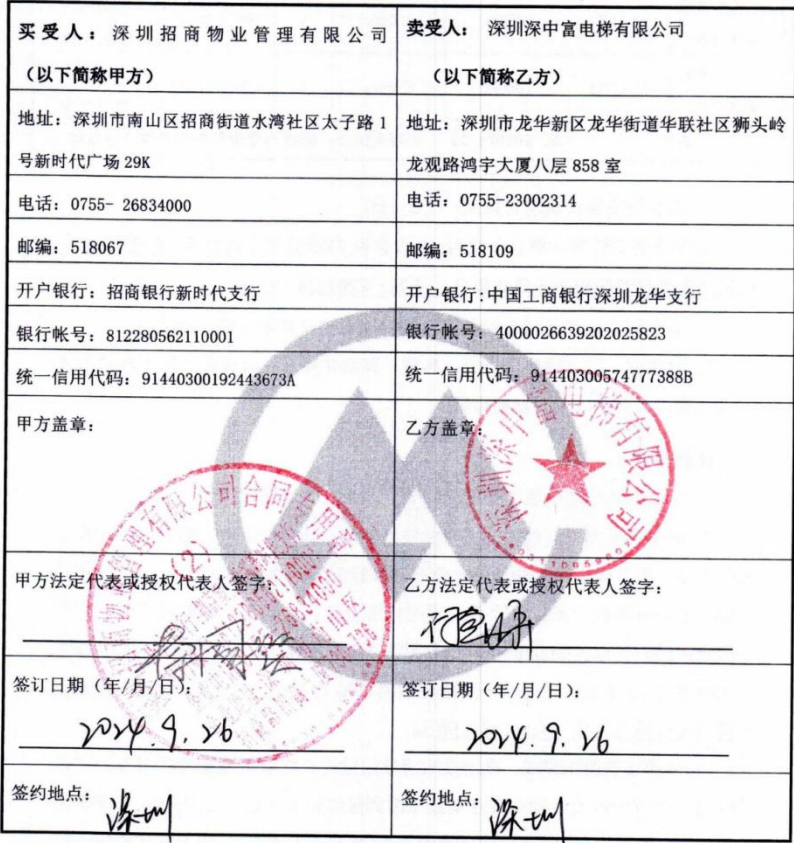 买受人：深圳招商物业管理有限公司
（以下简称甲方）
卖受人： 深圳深中富电梯有限公司
（以下简称乙方）
地址：深圳市南山区招商街道水湾社区太子路 1
号新时代广场 29K
地址：深圳市龙华新区龙华街道华联社区狮头岭
龙观路鸿宇大厦八层 858 室
电话：0755- 26834000
电话：0755-23002314
邮编：518067
邮编：518109
开户银行：招商银行新时代支行
开户银行:中国工商银行深圳龙华支行
银行帐号：812280562110001
银行帐号：4000026639202025823
统一信用代码：91440300192443673A
统一信用代码：91440300574777388B
甲方盖章：
乙方盖章：
深圳深中富电梯有限公司
物业管理有限公司合同专用章
(2)
甲方法定代表或授权代表人签字：
乙方法定代表或授权代表人签字：
签订日期（年/月/日）：
2024.9.26
签订日期（年/月/日）：
2024.9.26
签约地点：深圳
签约地点：深圳